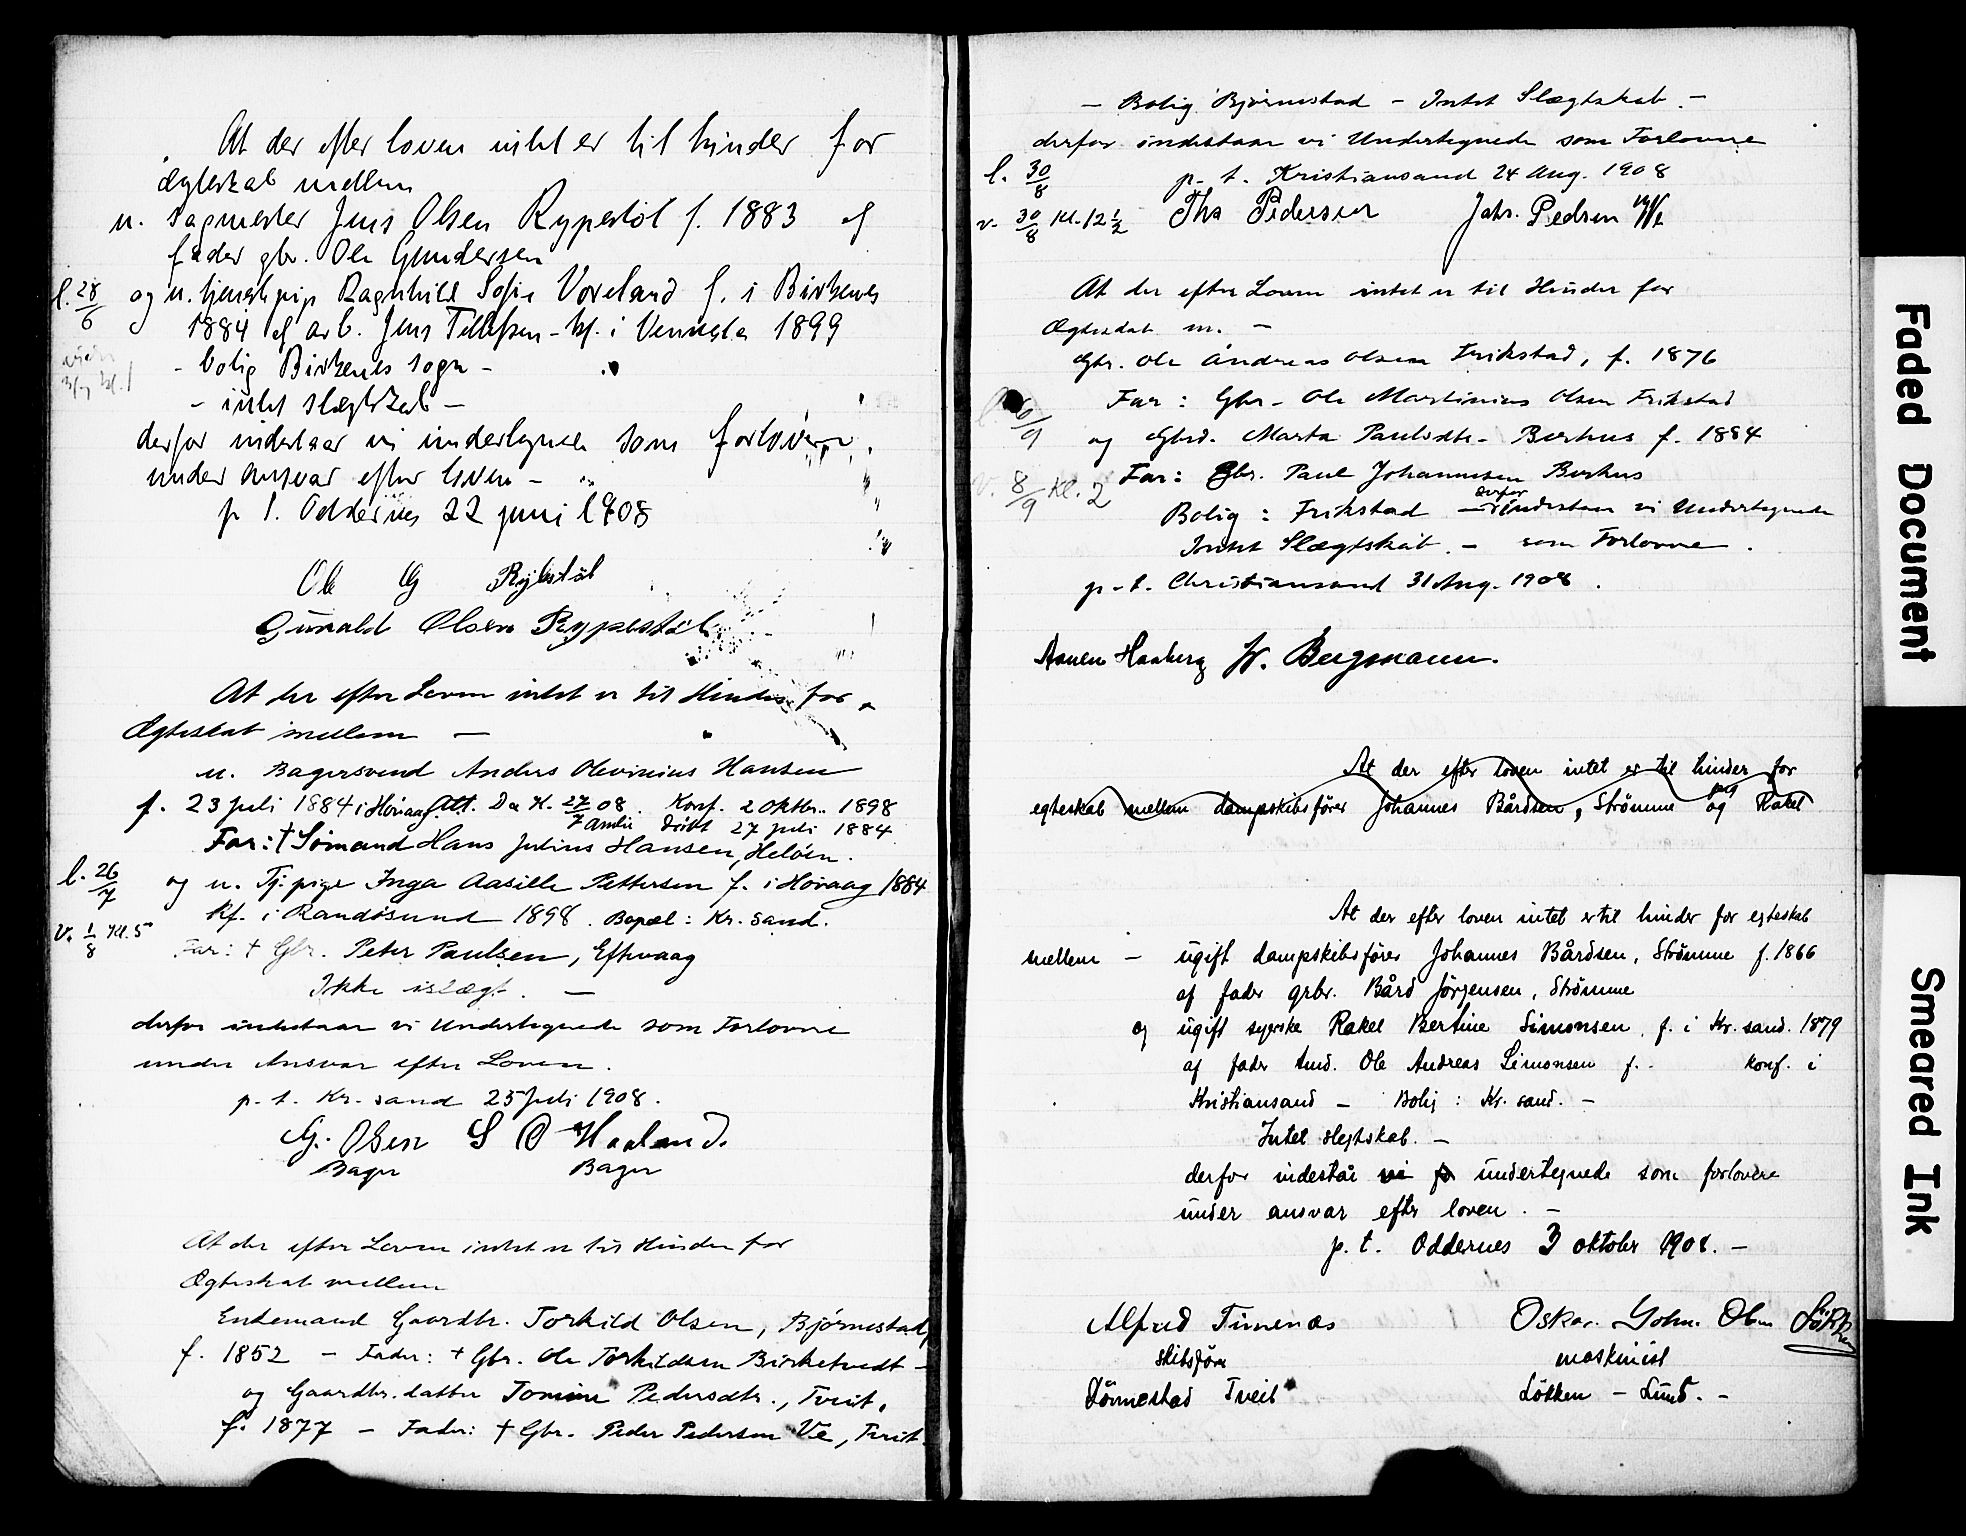 At der efter loven intet er til hinder for
ægteskab mellem
u. sagmester Jens Olsen Rypestøl f. 1883 af
fader gbr. Ole Gundersen
l. 28/6 og u. tjenestepige Ragnhild Sofie Voreland f. i Birkenes
1884 af arb. Jens Tellefsen - kf. i Vennesla 1899
- bolig Birkenes sogn -
- intet slægtskab -
derfor indestaar vi undertegnede som forlovere
under ansvar efter loven -
p t. Oddernes 22 juni 1908
Ole G Rypestøl
Gunvald Olsen Rypestøl
At der efter Loven intet er til Hinder for
Ægteskab mellem —
u. Bagersvend Anders Olevinius Hansen
f. 23 Juli 1884 i Høvaag Att. Da K. 27/7 08. Konf. 2 Oktbr. 1898
døbt 27 juli 1884
Far: † Sømand Hans Julius Hansen, Heløen.
l. 26/7 og u. Tj.pige Inga Aasille Pettersen f. i Høvaag 1884
Kf. i Randøsund 1898. Bopæl: Kr.sand.
v. 1/8 Kl. 5 Far: † Gbr. Peter Paulsen, Eftevaag
Ikke i slægt. —
derfor indestaar vi Undertegnede som Forlovere
under Ansvar efter Loven.
p. t. Kr.sand 25 Juli 1908.
G. Olsen S O Haaland.
Bager Bager
At der efter Loven intet er til Hinder for
Ægteskab mellem
Enkemand Gaardbr. Torkild Olsen, Bjørnestad,
f. 1852 — Fader: † Gbr. Ole Torkildsen Birketvedt —
og Gaardbr.datter Tomine Pedersdtr., Tveit,
f. 1877 — Fader: † Gbr. Peder Pedersen Ve, Tveit.
— Bolig Bjørnestad — Intet Slægtskab. —
derfor indestaar vi Undertegnede som Forlovere
l. 30/8 p. t. Kristiansand 24 Aug. 1908
v. 30/8 Kl. 12 1/2 Ths Pedersen Johs. Pedersen
At der efter Loven intet er til Hinder for
Ægteskab m. —
Gbr. Ole Andreas Olsen Frikstad, f. 1876
Far: Gbr. Ole Martinius Olsen Frikstad
6/9 og Gbrd. Marta Paulsdtr. Berhus f. 1884
Far: Gbr. Paul Johannesen Berhus
v. 8/9 Kl. 2 Bolig: Frikstad — derfor indestaar vi Undertegnede
Intet Slægtskab. — som Forlovere.
p. t. Christiansand 31 Aug. 1908.
Asuen Haaberg W. Bergmann.
At der efter loven intet er til hinder for
egteskab mellem dampskibsfører Johannes Bårdsen, Strømme og pig Rakel
At der efter loven intet er til hinder for egteskab
mellem — ugift dampskibsfører Johannes Bårdsen, Strømme f. 1866
af fader grbr. Bård Jørgensen, Strømme
og ugift syerske Rakel Bertine Simonsen, f. i Kr.sand. 1879
af fader tmd. Ole Andreas Simonsen f. - konf. i
Kristiansand — Bolig: Kr.sand. —
Intet slegtskab. —
derfor indestår vi undertegnede som forlovere
under ansvar efter loven. —
p. t. Oddernes 3 oktober 1908. —
Alfred Timenæs Oskar John Olsen Løkken
skibsfører maskinist
Dønnestad Tveit Løkken - Lund. -
Faded Document
Smeared Ink